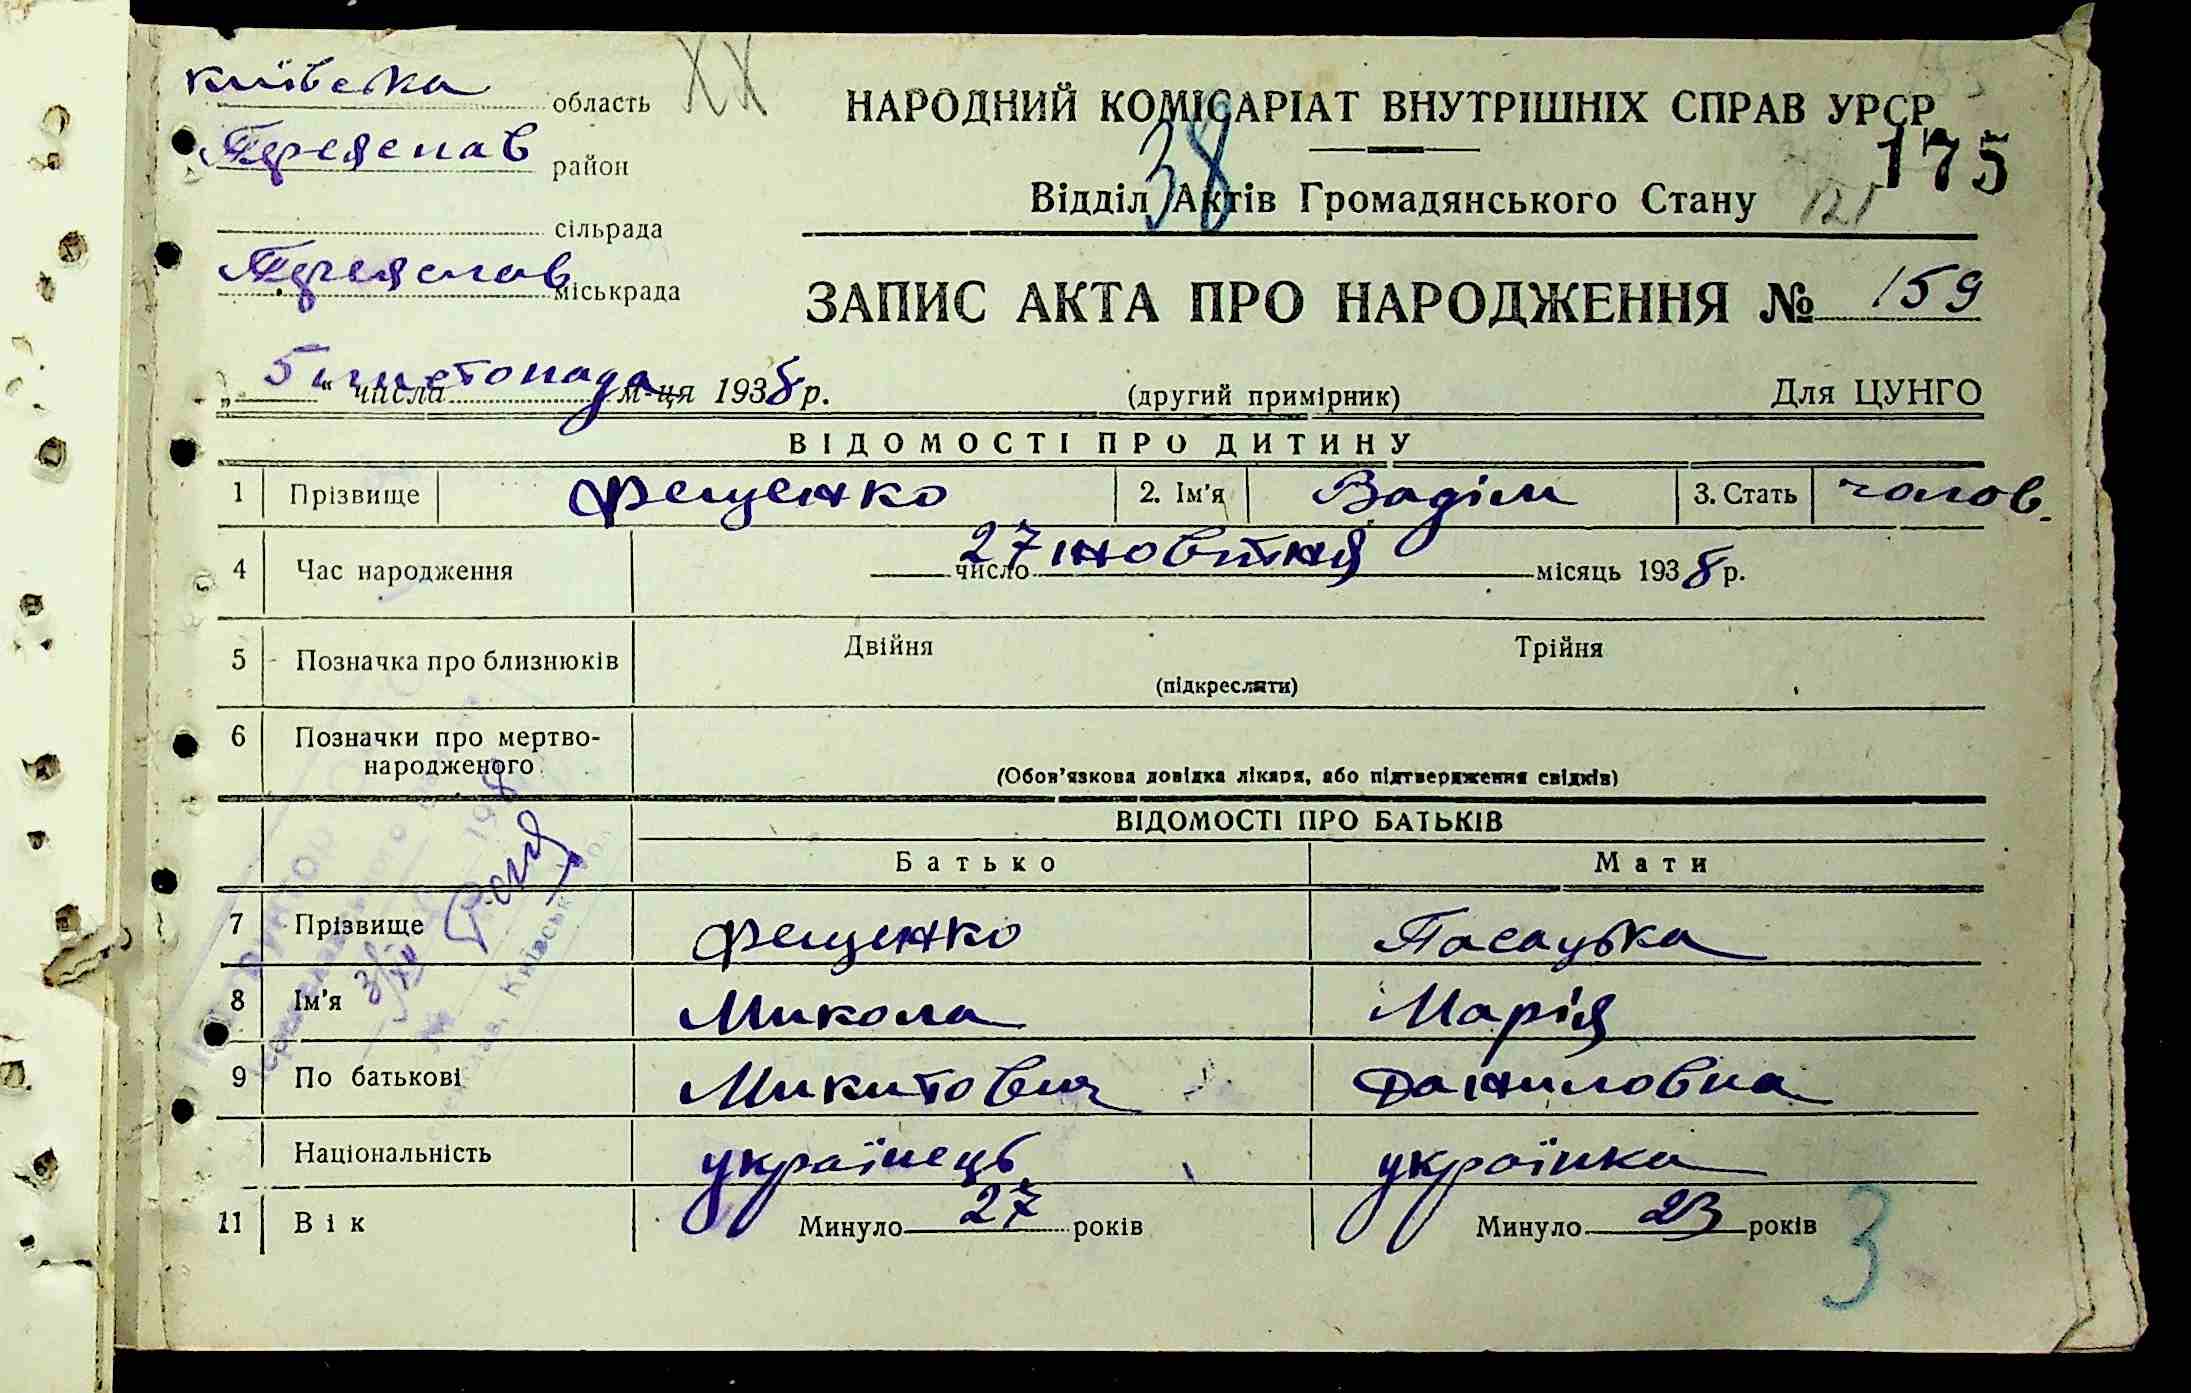 київська область
Переяслав район
сільрада
Переяслав міськрада
ХХ
НАРОДНИЙ КОМІСАРІАТ ВНУТРІШНІХ СПРАВ УРСР
38
175
Відділ Актів Громадянського Стану
121
ЗАПИС АКТА ПРО НАРОДЖЕННЯ № 159
„ 5 “ числа листопада м-ця 1938 р.
(другий примірник)
Для ЦУНГО
ВІДОМОСТІ ПРО ДИТИНУ
1 Прізвище Фещенко 2. Ім'я Вадім 3. Стать чолов.
4 Час народження 27 число жовтня місяць 1938 р.
5 Позначка про близнюків Двійня Трійня
(підкреслити)
6 Позначки про мертво-
народженого
(Обов'язкова довідка лікаря, або підтвердження свідків)
ВІДОМОСТІ ПРО БАТЬКІВ
Батько Мати
7 Прізвище Фещенко Пасацька
8 Ім'я Микола Марія
9 По батькові Микитович Даниловна
Національність українець українка
11 Вік Минуло 27 років Минуло 23 років
3